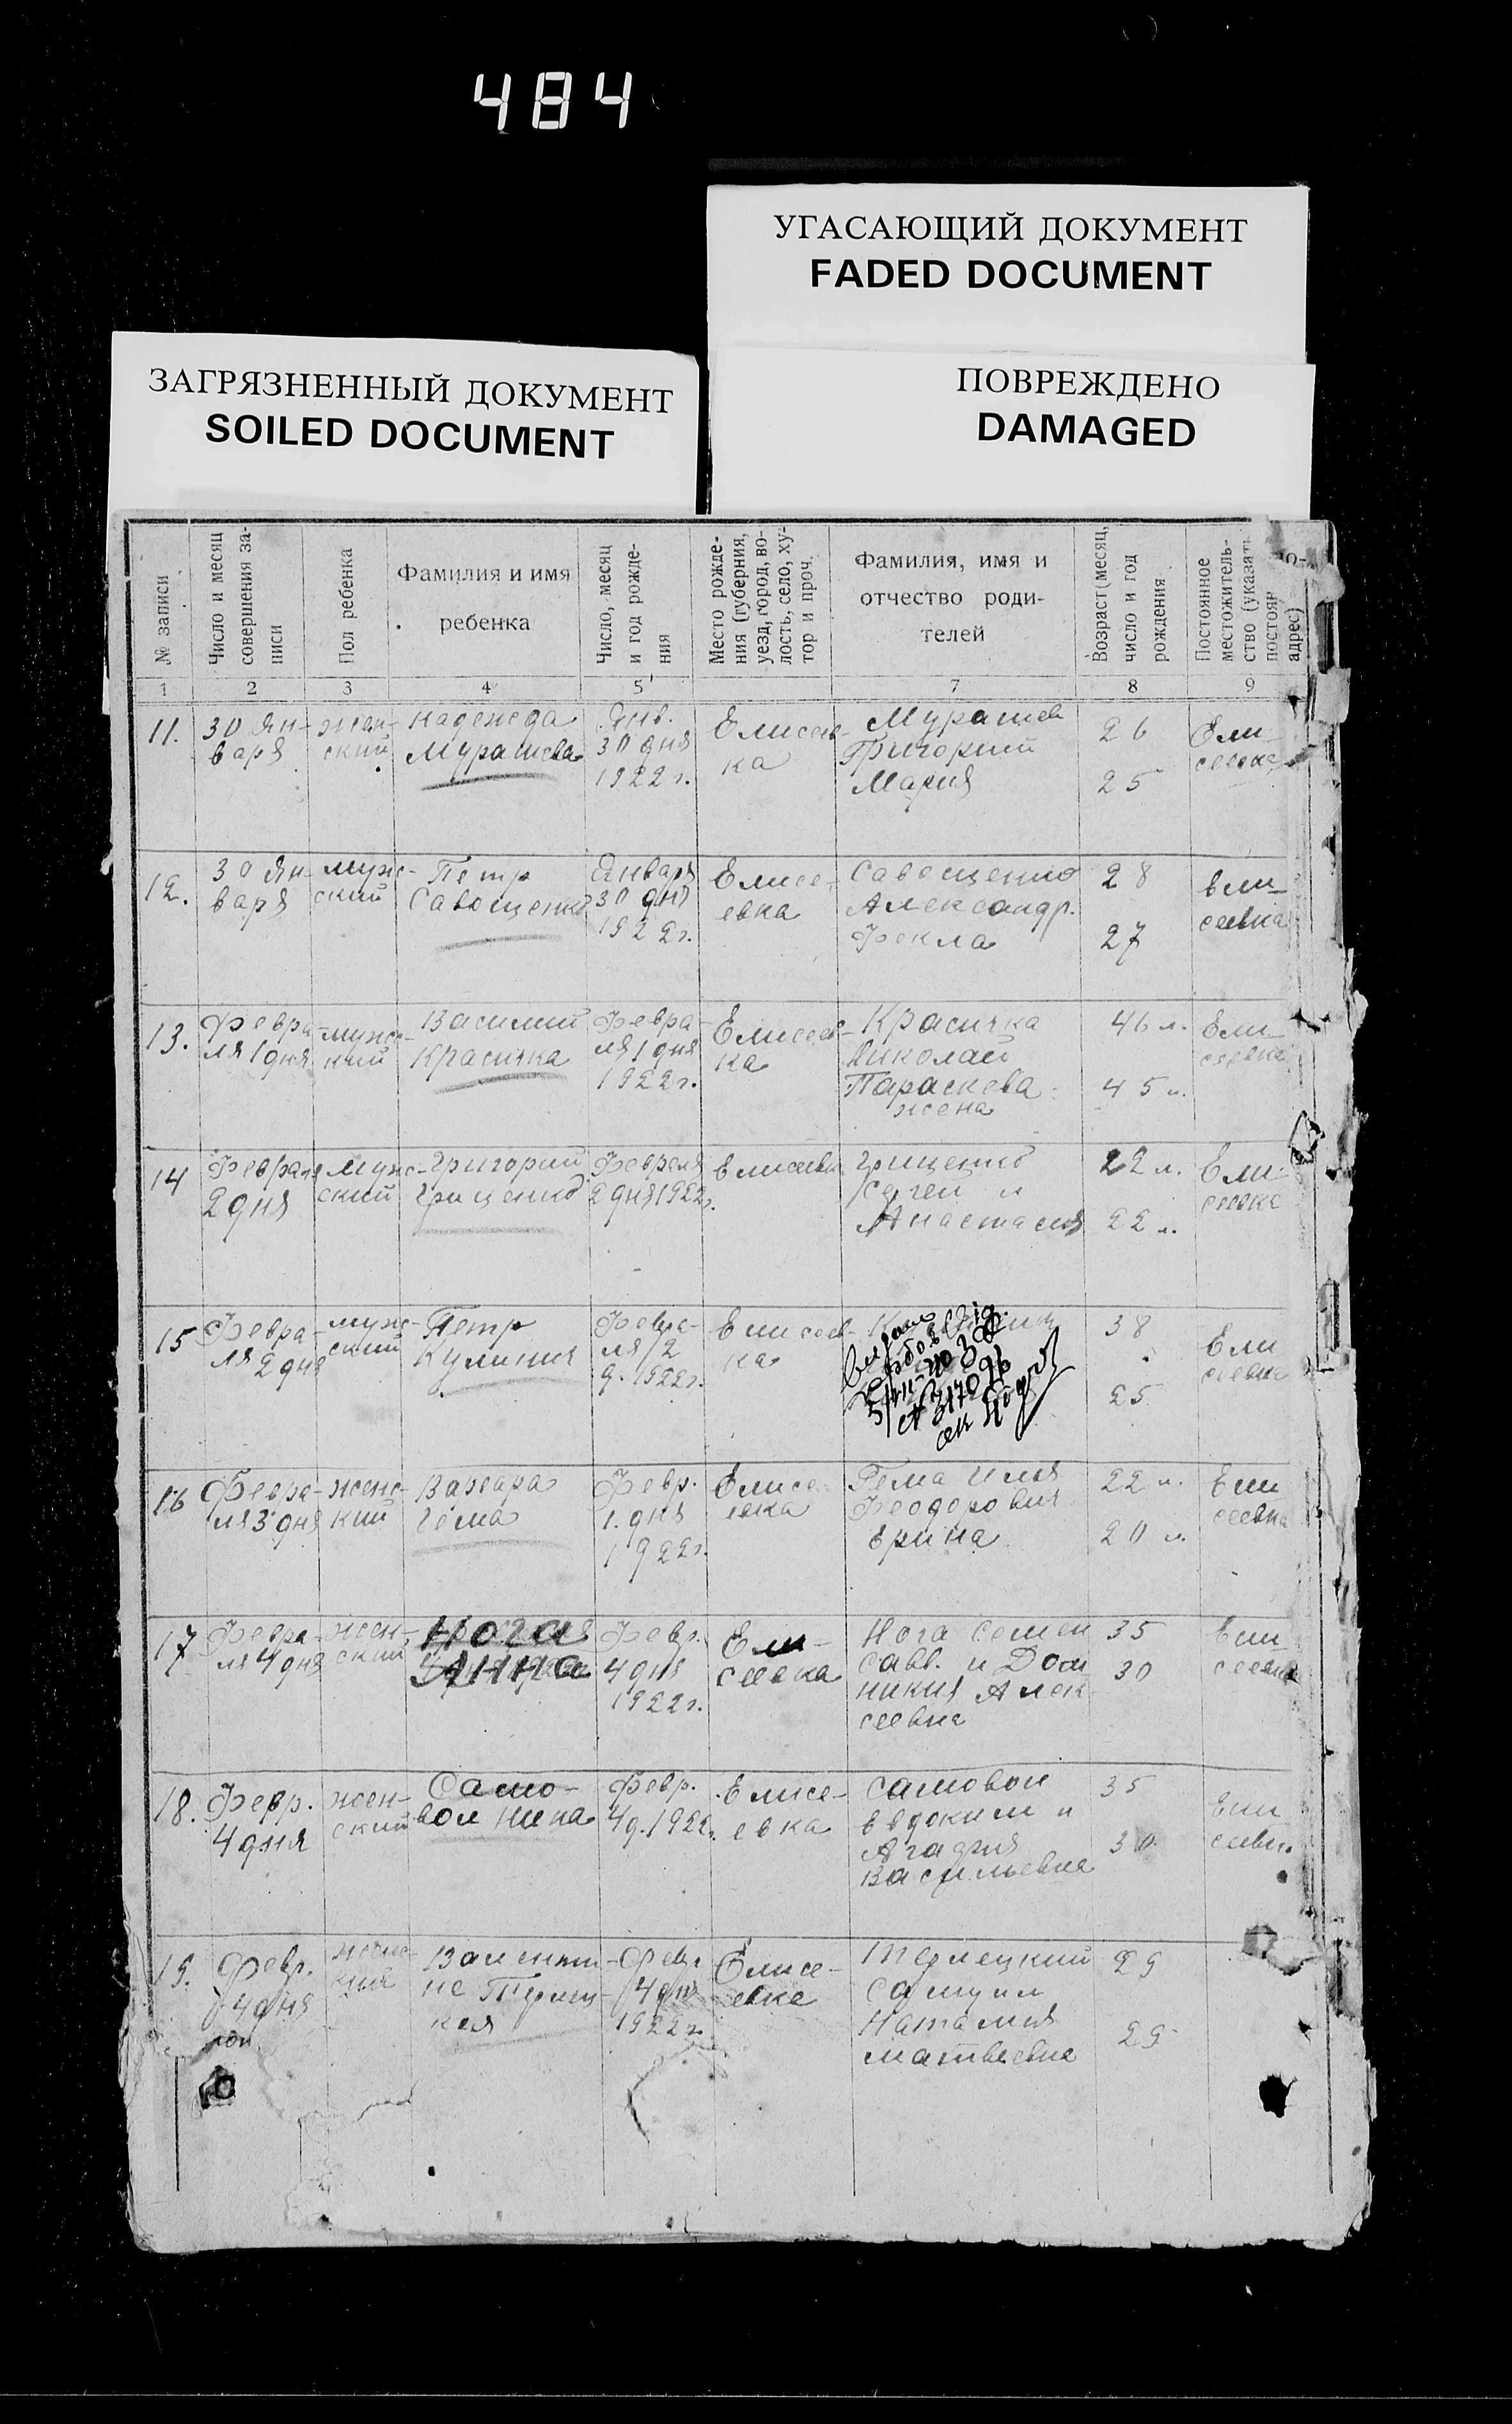 484
УГАСАЮЩИЙ ДОКУМЕНТ
FADED DOCUMENT
ЗАГРЯЗНЕННЫЙ ДОКУМЕНТ
SOILED DOCUMENT
ПОВРЕЖДЕНО
DAMAGED
№ записи
Число и месяц
совершения за-
писи
Пол ребенка
Фамилия и имя
ребенка
Число, месяц
и год рожде-
ния
Место рожде-
ния (губерния,
уезд, город, во-
лость, село, ху-
тор и проч.
Фамилия, имя и
отчество роди-
телей
Возраст (месяц,
число и год
рождения
Постоянное
местожитель-
ство (указать
постоян
адрес)
1
2
3
4
5
7
8
9
11.
30 Ян-
варя
жен-
ский
Надежда
Мурашева
Янв.
30 дня
1922 г.
Елисев-
ка
Мурашев
Григорий
Мария
26
25
Ели
сеевка
12.
30 Ян-
варя
муж-
ский
Петр
Савощенко
Января
30 дня
1922 г.
Елисе-
евка
Савощенко
Александр.
Фекла
28
27
Ели
сеевка
13.
Февра-
ля 1 дня
муж-
ский
Василий
Красичка
Февра-
ля 1 дня
1922 г.
Елисеев-
ка
Красичка
Николай
Параскева
жена
46 л.
45 л.
Ели
сеевка
14
Февраля
2 дня
муж-
ский
Григорий
Гриценко
Февраля
2 дня 1922 г.
Елисеевка
Гриценко
Сергей и
Анастасия
22 л.
22 л.
Ели
сеевка
15
Февра-
ля 2 дня
муж-
ский
Петр
Кулинич
Февра-
ля 2
д. 1922 г.
Елисеев-
ка
38
25
Ели
сеевка
16
Февра-
ля 3 дня
женс-
кий
Варвара
Гема
Февр.
1. дня
1922 г.
Елисе-
евка
Гема Илия
Феодорович
Ерина
22 л.
20 л.
Ели
сеевка
17
Февра-
ля 4 дня
жен-
ский
Нога
Анна
Февр.
4 дня
1922 г.
Ели-
сеевка
Нога Семен
Савв. и Дом
никия Алек
сеевна
35
30
Ели
сеевка
18.
Февр.
4 дня
жен-
ский
Само-
вол Нина
Февр.
4 д. 1922 г.
Елисе-
евка
Самовол
Евдоким и
Агафия
Васильевна
35
30
Ели
сеевка
19.
Февр.
4 дня
женс-
кий
Валенти-
на Терлец-
кая
Февр
4 дня
1922 г.
Елисе-
евка
Терлецкий
Самуил
Наталия
Матвеевна
29
29